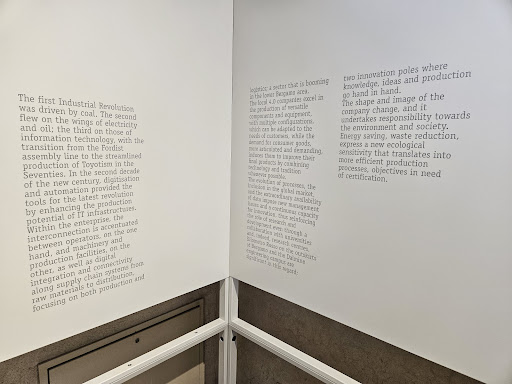 The first Industrial Revolution
was driven by coal. The second
flew on the wings of electricity
and oil; the third on those of
information technology, with the
transition from the Fordist
assembly line to the streamlined
production of Toyotism in the
Seventies. In the second decade
of the new century, digitisation
and automation provided the
tools for the latest revolution
by enhancing the production
potential of IT infrastructures.
Within the enterprise, the
interconnection is accentuated
between operators, on the one
hand, and machinery and
production facilities, on the
other, as well as digital
integration and connectivity
along supply chain systems from
raw materials to distribution,
focusing on both production and
logistics: a sector that is booming
in the lower Bergamo area.
The local 4.0 companies excel in
the production of versatile
components and equipment,
with multiple configurations,
which can be adapted to the
needs of customers, while the
demand for consumer goods,
more articulated and demanding,
induces them to improve their
final products by combining
technology and tradition
wherever possible.
The evolution of processes, the
inclusion in the global market,
and the extraordinary availability
of data require new management
tools and a continual capacity
for innovation, thus reinforcing
the role of research and
development even through a
collaboration with universities
and
research centres.
Kilometro Rosso on the outskirts
of Bergamo and the Dalmine
engineering campus are
significant in this regard:
two innovation poles where
knowledge, ideas and production
go hand in hand.
The shape and image of the
company change, and it
undertakes responsibility towards
the environment and society.
Energy saving, waste reduction,
express a new ecological
sensitivity that translates into
more efficient production
processes, objectives in need
of certification.